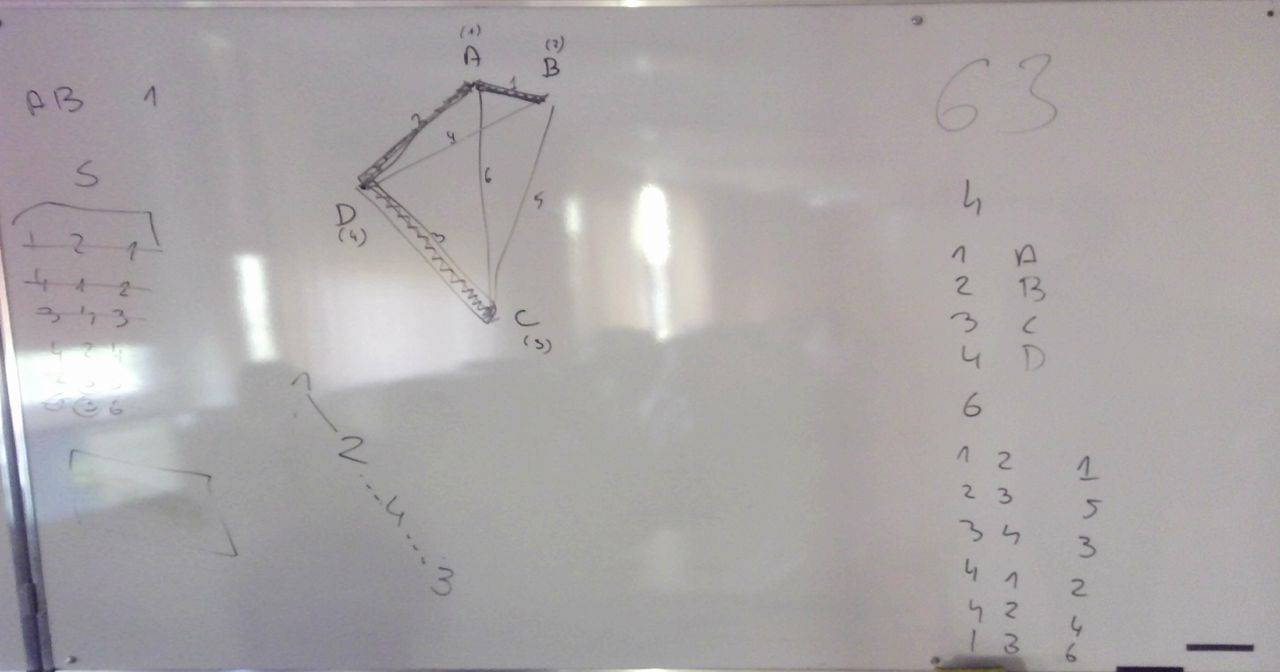 AB 1
S
1 2 1
4 1 2
3 4 3
4 2 4
6
(1)
A
(2)
B
1
2
4
6
5
3
D
(4)
C
(3)
1
2
4
3
63
4
1 A
2 B
3 C
4 D
6
1 2 1
2 3 5
3 4 3
4 1 2
4 2 4
1 3 6